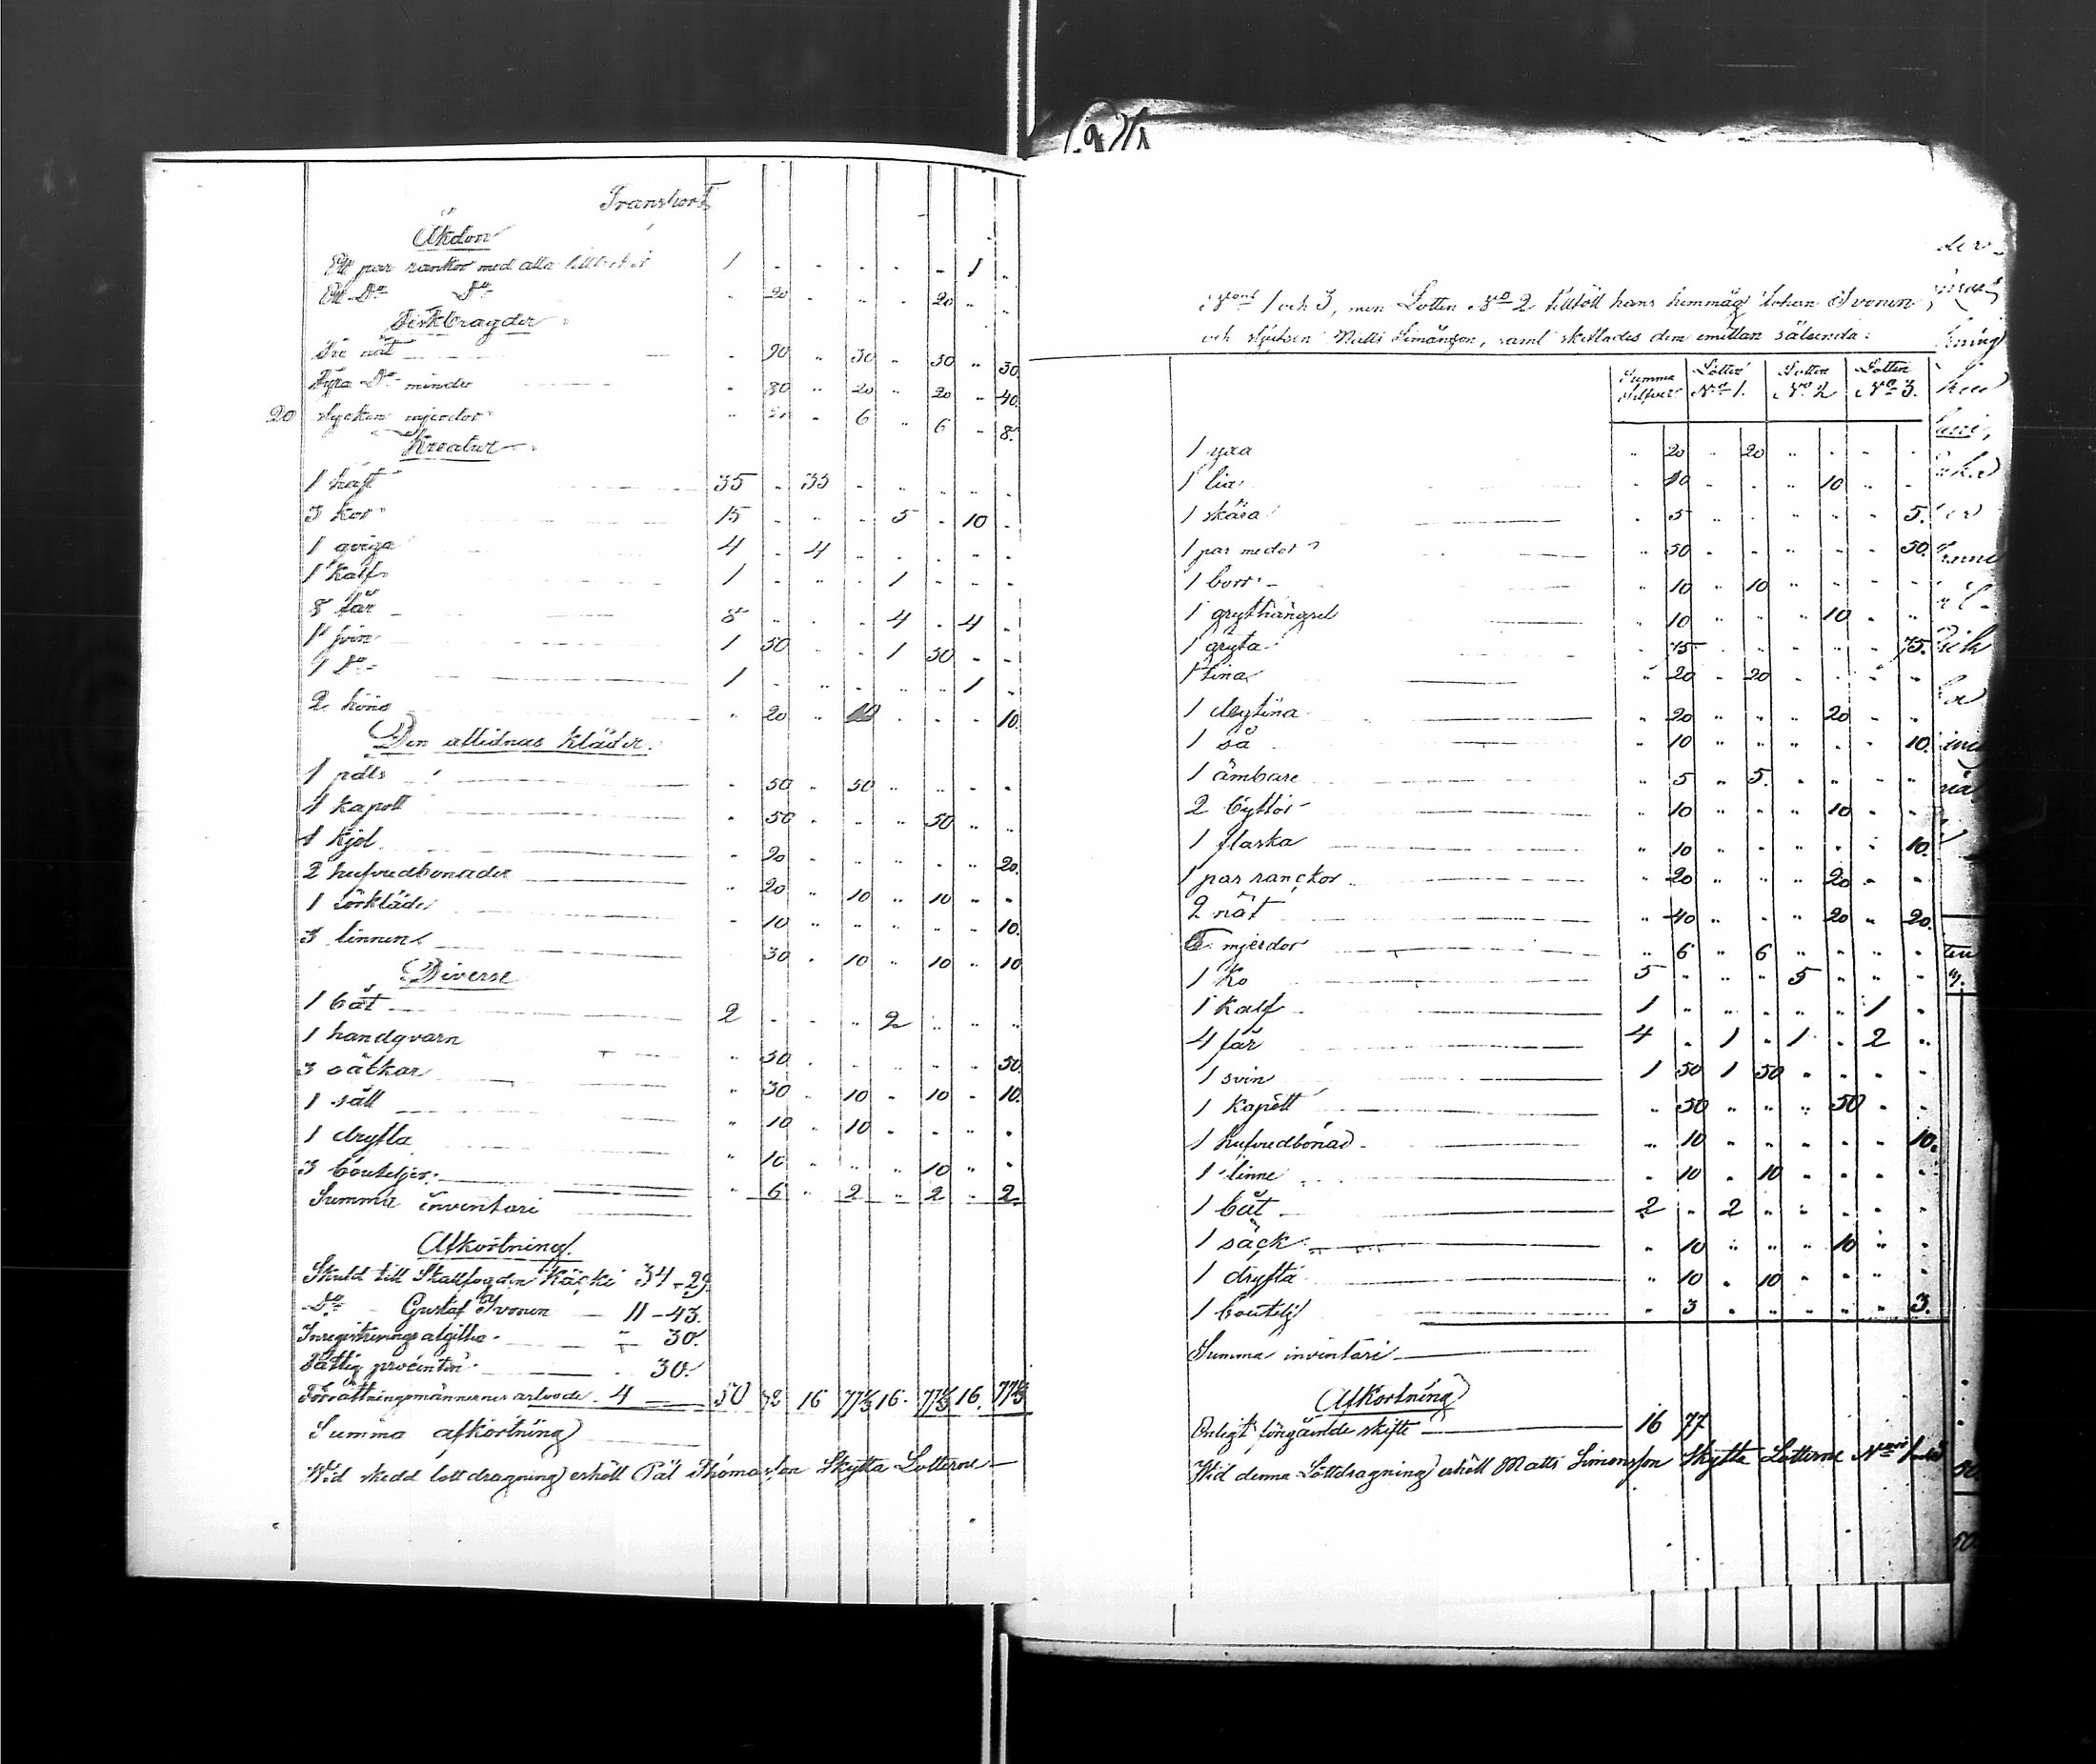 Transport
Åkdon
Ett par rankor med alla tillbehör 1 - - - - - 1 -
Ett Do Do - 20 - - - 20 - -
Fiskbragder
Tre nät - 90 " 30 - 30 " 30
Fyra Do mindre - 80 " 20 - 20 - 40
20 stycken mjerdor " 20 - 6 " 6 - 8
Kreatur
1 häst 35 - 35 - - - - -
3 kor 15 - - - 5 - 10 -
1 qviga 4 - 4 - - - - -
1 kalf 1 - " - 1 - - -
8 får 8 - - - 4 - 4 -
1 svin 1 50 - - 1 50 - -
1 Do 1 - " - " - 1 -
2 höns " 20 " 10 - - - 10
Den aflidnas kläder
1 päls - 50 " 50 " - - -
1 kapott - 50 - - " 50 " "
1 kjol - 20 - " " - " 20
2 hufvudbonader " 20 " 10 " 10 - -
1 förkläde - 10 " " " - - 10
3 linnen 30 - 10 " 10 " 10
Diverse
1 båt 2 - - " 2 " " "
1 handqvarn " 50 - - - - - 50
3 säckar " 30 - 10 - 10 - 10
1 såll " 10 - 10 - - - -
1 dryfta " 10 - " " 10 " -
3 bouteljer " 6 " 2 " 2 - 2
Summa inventari
Afkortning
Skuld till Skallfogden Käcki 34 - 29
Do Gustaf Ivonen 11 - 43
Inregistrerings afgifter " 30
Fattig procenten - 30
Förrättningsmännernes arbvode 4 50 72 16 77⅓ 16 77⅓ 16 77⅓
Summa afkortning
Wid skedd lottdragning erhöll Pål Thomasson Skytta Lotterne
1 och 3, men Lotten No 2 tillföll hans hemmåg Johan Ivonen
och Matts Simonsson, samt skiftades dem emellan sålunda:
Summa Silfver Lotten No 1. Lotten No 2 Lotten No 3.
1 yxa " 20 " 20 " - - -
1 lia - 10 - - " 10 - -
1 skära - 5 " - " - - 5
1 par medar " 50 - - - - - 50
1 borr " 10 " 10 " - - -
1 grythängsel " 10 " " " 10 - "
1 gryta " 75 - - - - - 75
1 tina " 20 - 20 - - - -
1 degtina " 20 " " - 20 - -
1 så " 10 " " " - - 10
1 ämbare " 5 " 5 - " - "
2 byttor " 10 " " " 10 - -
1 flaska " 10 " - " - - 10
1 par ranckor " 20 " " - 20 - -
2 nät " 40 " - " 20 " 20
6 mjerdor " 6 " 6 " - " -
1 ko 5 " " " 5 " " -
1 kalf 1 " " " - " 1 -
4 får 4 - 1 - 1 - 2 "
1 svin 1 50 1 50 - - - -
1 kapott " 50 " " " 50 - -
1 hufvudbonad " 10 - - - - - 10
1 linne - 10 - 10 - - - -
1 båt 2 " 2 - - - - -
1 säck - 10 " " " 10 " -
1 dryfta " 10 - 10 - - " -
1 boutelj " 3 - " " " " 3
Summa inventari
Afkortning
Enligt föregående skifte 16 77
Wid denna Lottdragning erhöll Matts Simonsson Skytta Lotterne